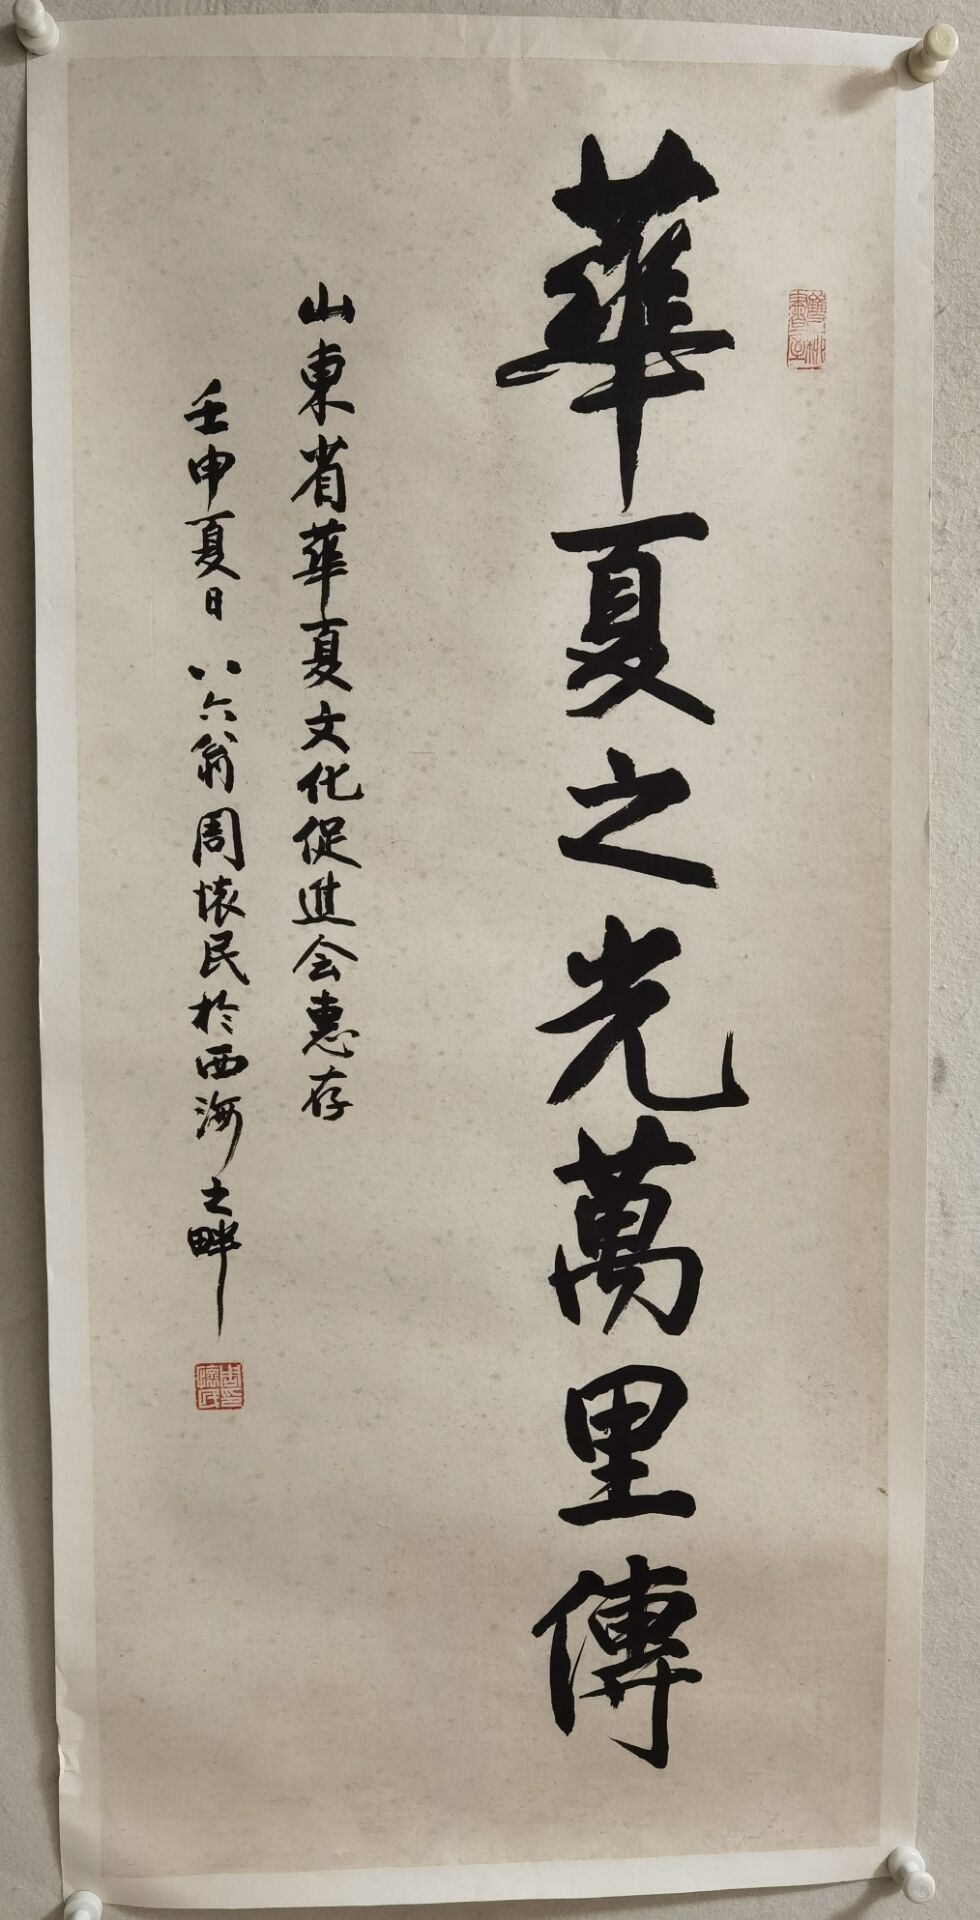 華夏之光萬里傳
山東省華夏文化促進会惠存
壬申夏日 八六翁周懐民於西海之畔